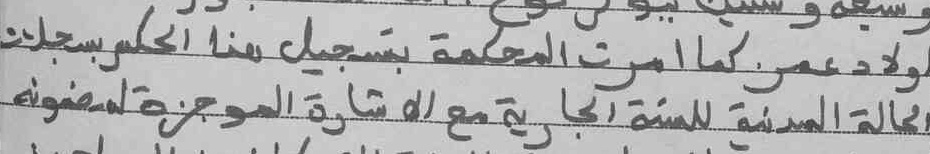 وسبعة وستين
اولاد عمر. كما امرت المحكمة بتسجيل هذا الحكم بسجلات
الحالة المدنية للسنة الجارية مع الاشارة الموجزة لمضمونه